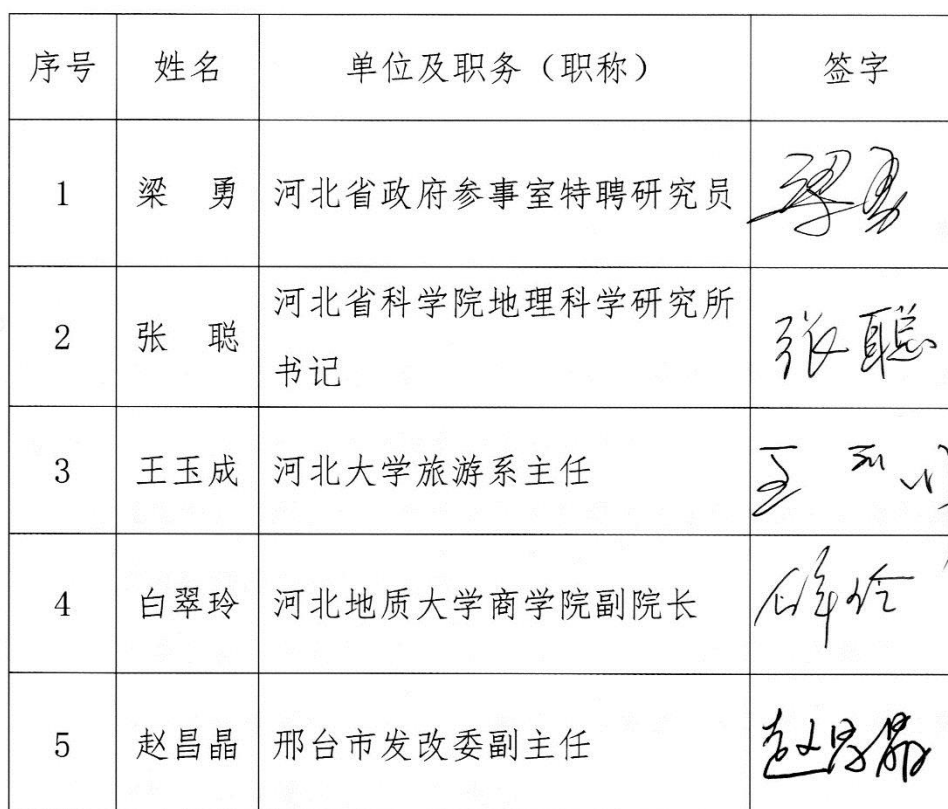 序号 姓名 单位及职务（职称） 签字
1 梁 勇 河北省政府参事室特聘研究员 梁勇
2 张 聪 河北省科学院地理科学研究所
书记 张聪
3 王玉成 河北大学旅游系主任
4 白翠玲 河北地质大学商学院副院长
5 赵昌晶 邢台市发改委副主任 赵昌晶